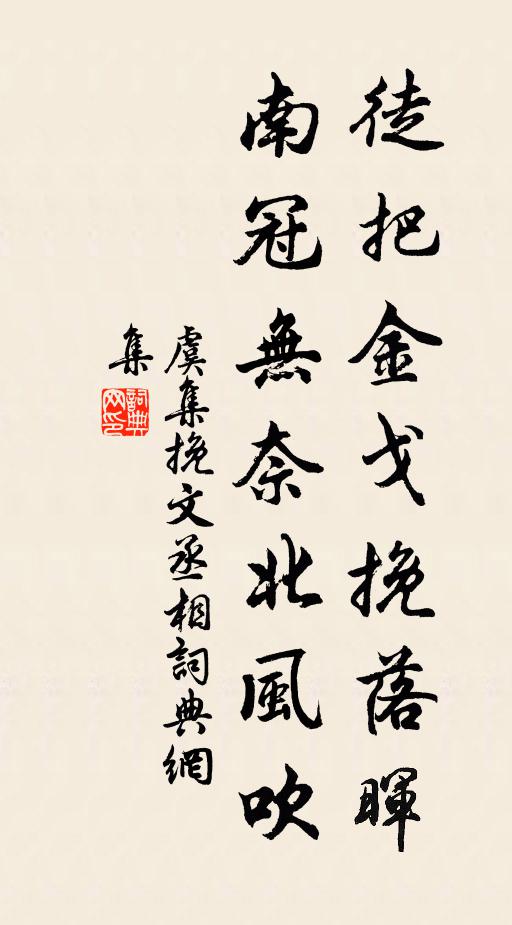 徒把金戈挽落暉
南冠無奈北風吹
虞集挽文丞相詞典網
集
詞典网印